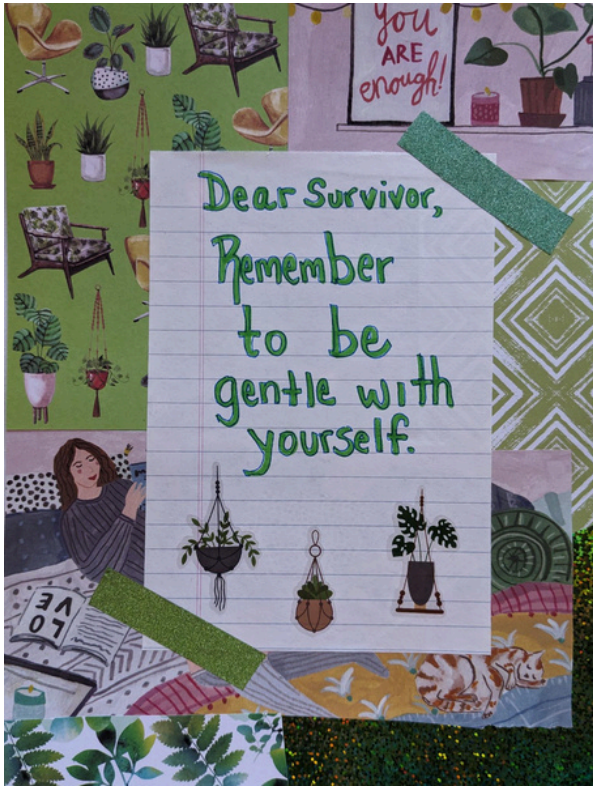 You
ARE
enough!
Dear Survivor,
Remember
to be
gentle with
yourself.
LO
VE